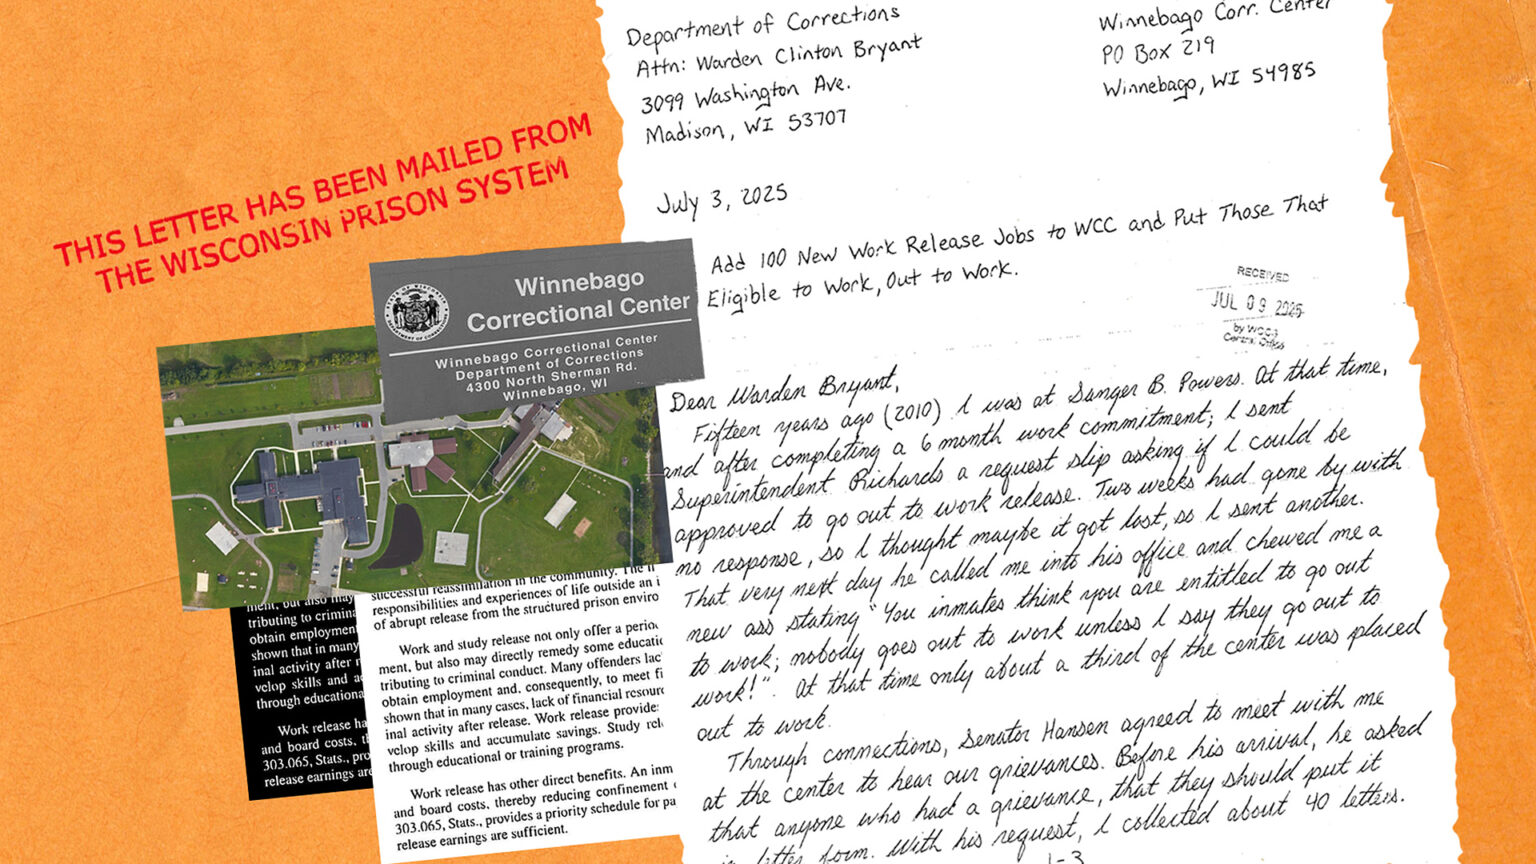 Department of Corrections
Attn: Warden Clinton Bryant
3099 Washington Ave.
Madison, WI 53707
Winnebago Corr. Center
PO Box 219
Winnebago, WI 54985
July 3, 2025
Add 100 New Work Release Jobs to WCC and Put Those That
Eligible to Work, Out to Work.
RECEIVED
JUL 09 2025
by WCCS
Central Office
Dear Warden Bryant,
Fifteen years ago (2010) I was at Sanger B. Powers. At that time,
and after completing a 6 month work commitment; I sent
Superintendent Richards a request slip asking if I could be
approved to go out to work release. Two weeks had gone by with
no response, so I thought maybe it got lost, so I sent another.
That very next day he called me into his office and chewed me a
new ass stating "You inmates think you are entitled to go out
to work; nobody goes out to work unless I say they go out to
work!". At that time only about a third of the center was placed
out to work.
Through connections, Senator Hansen agreed to meet with me
at the center to hear our grievances. Before his arrival, he asked
that anyone who had a grievance, that they should put it
in letter form. With his request, I collected about 40 letters.
1-3
THIS LETTER HAS BEEN MAILED FROM
THE WISCONSIN PRISON SYSTEM
Winnebago
Correctional Center
Winnebago Correctional Center
Department of Corrections
4300 North Sherman Rd.
Winnebago, WI
ment, but also may
tributing to crimina
obtain employment
shown that in many
inal activity after r
velop skills and a
through educationa
Work release ha
and board costs, t
303.065, Stats., pro
release earnings are
successful reassimilation in the community. The
responsibilities and experiences of life outside an i
of abrupt release from the structured prison enviro
Work and study release not only offer a perio
ment, but also may directly remedy some educati
tributing to criminal conduct. Many offenders lac
obtain employment and, consequently, to meet fi
shown that in many cases, lack of financial resourc
inal activity after release. Work release provide
velop skills and accumulate savings. Study rel
through educational or training programs.
Work release has other direct benefits. An inm
and board costs, thereby reducing confinement
303.065, Stats., provides a priority schedule for pa
release earnings are sufficient.